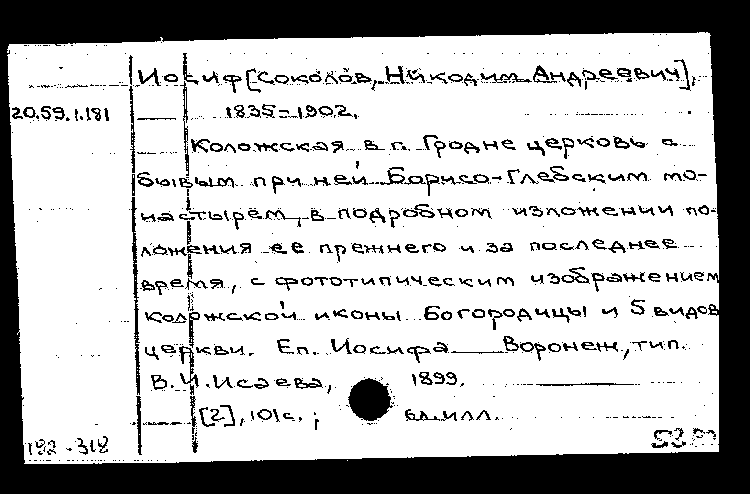 Иосиф [Соколов, Никодим Андреевич],
20.59.1.181 1835-1902.
Коложская в г. Гродне церковь с
бывым при ней Борисо-Глебским мо-
настырем, в подробном изложении по-
ложения ее прежнего и за последнее
время, с фототипическим изображением
Коложской иконы Богородицы и 5 видов
церкви. Еп. Иосифа Воронеж, тип.
В.И. Исаева, 1899.
[2], 101 с.; ил.
192-318